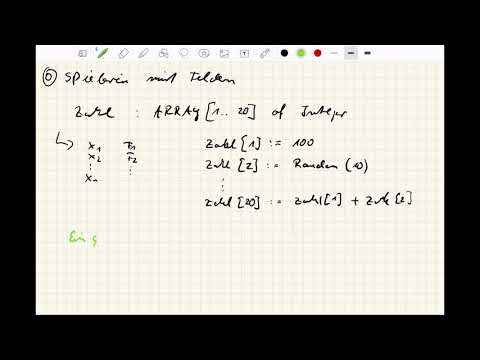 ⓪ Spielerein mit Feldern
Zahl : ARRAY [1..20] of Integer
↳ x₁
x₂
⋮ ⋮
xₙ
Zahl [1] := 100
Zahl [2] := Random (10)
⋮
Zahl [20] := Zahl [1] + Zahl [2]
Ein